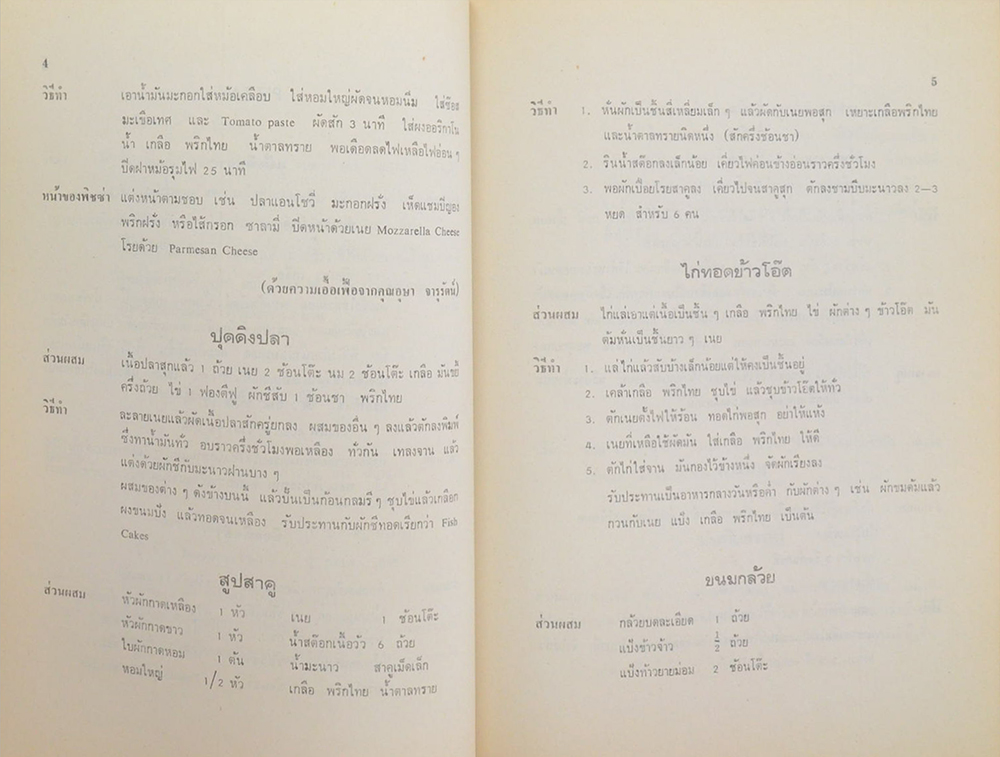 4
วิธีทำ เอาน้ำมันมะกอกใส่หม้อเคลือบ ใส่หอมใหญ่ผัดจนหอมนึม ใส่ซ๊อส
มะเขือเทศ และ Tomato paste ผัดสัก 3 นาที ใส่ผงออริกาโน
น้ำ เกลือ พริกไทย น้ำตาลทราย พอเดือดลดไฟเหลือไฟอ่อน ๆ
ปิดฝาหม้อรุมไฟ 25 นาที
หน้าของพิซซ่า แต่งหน้าตามชอบ เช่น ปลาแอนโชวี่ มะกอกฝรั่ง เห็ดแชมปิญอง
พริกฝรั่ง หรือไส้กรอก ซาลามี่ ปิดหน้าด้วยเนย Mozzarella Cheese
โรยด้วย Parmesan Cheese
(ด้วยความเอื้อเฟื้อจากคุณอุษา จารุรัตน์)
ปุดดิงปลา
ส่วนผสม เนื้อปลาสุกแล้ว 1 ถ้วย เนย 2 ช้อนโต๊ะ นม 2 ช้อนโต๊ะ เกลือ มันขยี้
ครึ่งถ้วย ไข่ 1 ฟองตีฟู ผักชีสับ 1 ช้อนชา พริกไทย
วิธีทำ ละลายเนยแล้วผัดเนื้อปลาสักครู่ยกลง ผสมของอื่น ๆ ลงแล้วตักลงพิมพ์
ซึ่งทาน้ำมันทั่ว อบราวครึ่งชั่วโมงพอเหลือง ทั่วกัน เทลงจาน แล้ว
แต่งด้วยผักชีกับมะนาวฝานบาง ๆ
ผสมของต่าง ๆ ดังข้างบนนี้ แล้วปั้นเป็นก้อนกลมรี ๆ ชุบไข่แล้วเกลือก
ผงขนมปัง แล้วทอดจนเหลือง รับประทานกับผักชีทอดเรียกว่า Fish
Cakes
สูปสาคู
ส่วนผสม หัวผักกาดเหลือง 1 หัว เนย 1 ช้อนโต๊ะ
หัวผักกาดขาว 1 หัว น้ำสต๊อกเนื้อวัว 6 ถ้วย
ใบผักกาดหอม 1 ต้น น้ำมะนาว สาคูเม็ดเล็ก
หอมใหญ่ 1/2 หัว เกลือ พริกไทย น้ำตาลทราย
5
วิธีทำ 1. หั่นผักเป็นชิ้นสี่เหลี่ยมเล็ก ๆ แล้วผัดกับเนยพอสุก เหยาะเกลือพริกไทย
และน้ำตาลทรายนิดหนึ่ง (สักครึ่งช้อนชา)
2. รินน้ำสต๊อกลงเล็กน้อย เคี่ยวไฟค่อนข้างอ่อนราวครึ่งชั่วโมง
3. พอผักเปื่อยโรยสาคูลง เคี่ยวไปจนสาคูสุก ตักลงชามบีบมะนาวลง 2—3
หยด สำหรับ 6 คน
ไก่ทอดข้าวโอ๊ต
ส่วนผสม ไก่แล่เอาแต่เนื้อเป็นชิ้น ๆ เกลือ พริกไทย ไข่ ผักต่าง ๆ ข้าวโอ๊ต มัน
ต้มหั่นเป็นชิ้นยาว ๆ เนย
วิธีทำ 1. แล่ไก่แล้วสับบ้างเล็กน้อยแต่ให้คงเป็นชิ้นอยู่
2. เคล้าเกลือ พริกไทย ชุบไข่ แล้วชุบข้าวโอ๊ตให้ทั่ว
3. ตักเนยตั้งไฟให้ร้อน ทอดไก่พอสุก อย่าให้แห้ง
4. เนยที่เหลือใช้ผัดมัน ใส่เกลือ พริกไทย ให้ดี
5. ตักไก่ใส่จาน มันกองไว้ข้างหนึ่ง จัดผักเรียงลง
รับประทานเป็นอาหารกลางวันหรือค่ำ กับผักต่าง ๆ เช่น ผักขมต้มแล้ว
กวนกับเนย แป้ง เกลือ พริกไทย เป็นต้น
ขนมกล้วย
ส่วนผสม กล้วยบดละเอียด 1 ถ้วย
แป้งข้าวจ้าว ½ ถ้วย
แป้งท้าวยายม่อม 2 ช้อนโต๊ะ